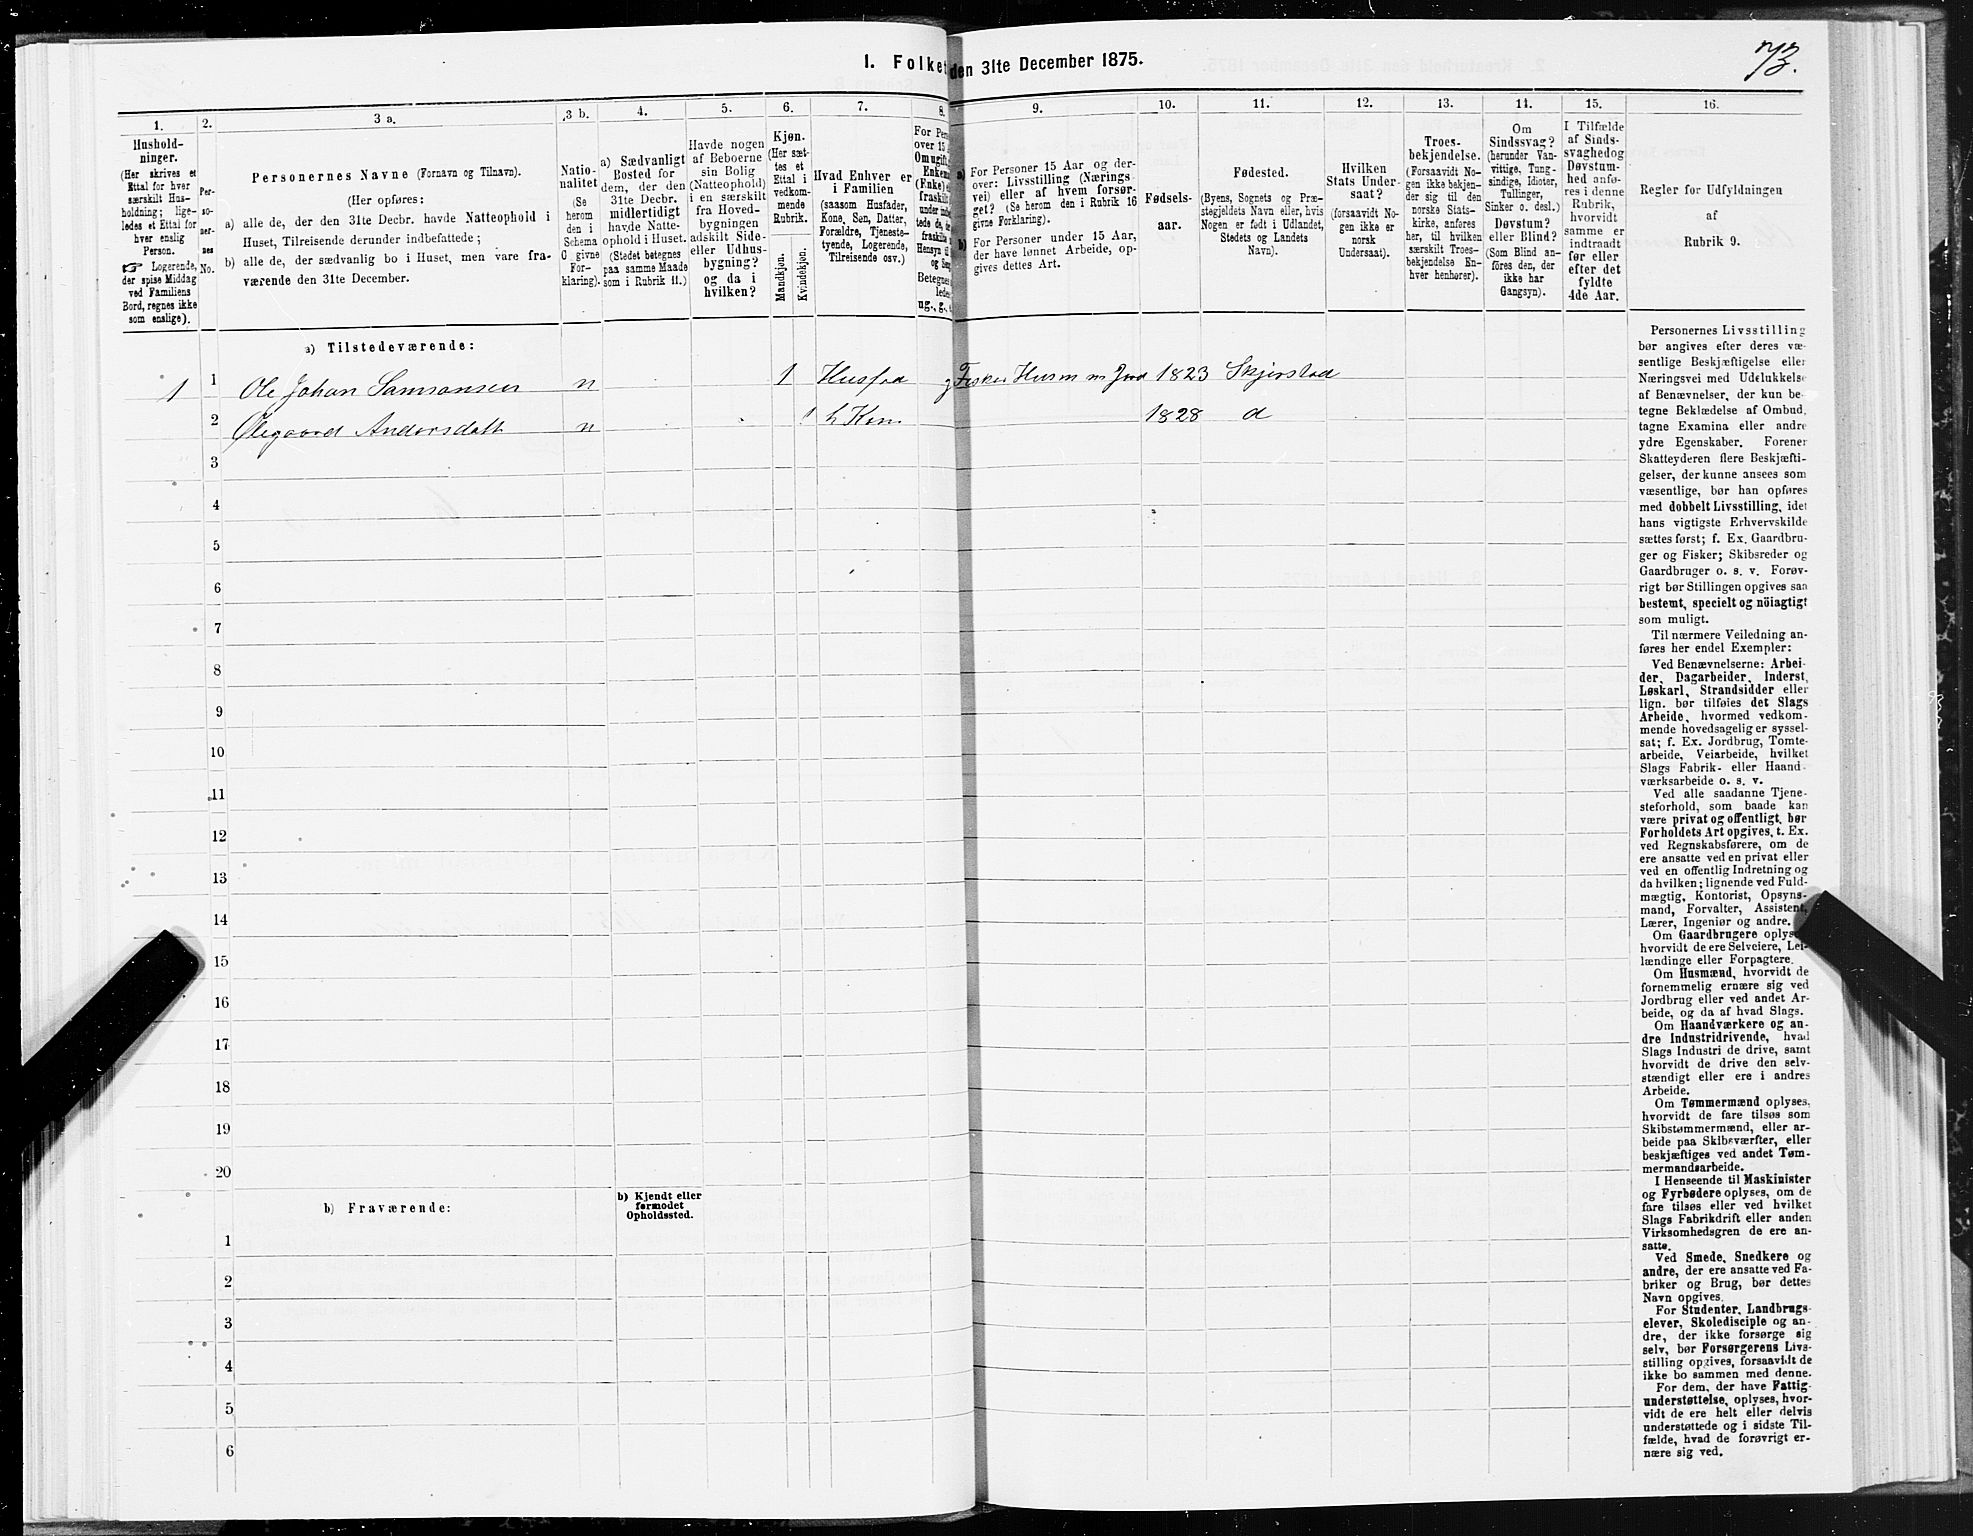 1. Folket den 31te December 1875.
73.
1.
Hushold-
ninger.
(Her skrives et
Ettal for hver
særskilt Hus-
holdning; lige-
ledes et Ettal for
hver enslig
Person.
☞ Logerende,
der spise Middag
ved Familiens
Bord, regnes ikke
som enslige).
2.
Per-
so-
ner-
nes
No.
3 a.
Personernes Navne (Fornavn og Tilnavn).
(Her opføres:
a) alle de, der den 31te Decbr. havde Natteophold i
Huset, Tilreisende derunder indbefattede;
b) alle de, der sædvanlig bo i Huset, men vare fra-
værende den 31te December.
3 b.
Natio-
nalitet
(Se
herom
den i
Schema
C givne
For-
klaring).
4.
a) Sædvanligt
Bosted for
dem, der den
31te Decbr.
midlertidigt
havde Natte-
ophold i Huset.
(Stedet betegnes
paa samme Maade
som i Rubrik 11.)
5.
Havde nogen
af Beboerne
sin Bolig
(Natteophold)
i en særskilt
fra Hoved-
bygningen
adskilt Side-
eller Udhus-
bygning?
og da i
hvilken?
6.
Kjøn.
(Her sæt-
tes et
Ettal i
vedkom-
mende
Rubrik.
Mandkjøn.
Kvindekjøn.
7.
Hvad Enhver er
i Familien
(saasom Husfader,
Kone, Søn, Datter,
Forældre, Tjeneste-
tyende, Logerende,
Tilreisende osv.)
8.
For Per
over 15
Omugift,
Enkem
(Enke) e
fraskilt
under indbe
tede de, de
fraskilte
Hensyn ti
og Sen
Betegnes
lede
ug., g., e
9.
a) For Personer 15 Aar og der-
over: Livsstilling (Nærings-
vei) eller af hvem forsør-
get? (Se herom den i Rubrik 16
givne Forklaring).
b) For Personer under 15 Aar,
der have lønnet Arbeide, op-
gives dettes Art.
10.
Fødsels-
aar.
11.
Fødested.
(Byens, Sognets og Præ-
stegjeldets Navn eller, hvis
Nogen er født i Udlandet,
Stedets og Landets
Navn).
12.
Hvilken
Stats Under-
saat?
(forsaavidt No-
gen ikke er
norsk
Undersaat).
13.
Troes-
bekjendelse.
(Forsaavidt No-
gen ikke bekjen-
der sig til den
norske Stats-
kirke, anføres
her, til hvilken
særskilt Troes-
bekjendelse En-
hver henhører).
14.
Om
Sindssvag?
(herunder Van-
vittige, Tung-
sindige, Idioter,
Tullinger,
Sinker o. desl.)
Døvstum?
eller Blind?
(Som Blind an-
føres den, der
ikke har
Gangsyn).
15.
I Tilfælde
af Sinds-
svaghed og
Døvstum-
hed anfø-
res i denne
Rubrik,
hvorvidt
samme er
indtraadt
før eller
efter det
fyldte
4de Aar.
16.
Regler for Udfyldningen
af
Rubrik 9.
a) Tilstedeværende:
1 1 Ole Johan Samsonsen n 1 Husfad g Fisker Husm m Jord 1823 Skjerstad
2 Olegaard Andersdatt n 1 h Kon 1828 d
3
4
5
6
7
8
9
10
11
12
13
14
15
16
17
18
19
20
b) Fraværende:
b) Kjendt eller
formodet
Opholdssted.
1
2
3
4
5
6
Personernes Livsstilling
bør angives efter deres væ-
sentlige Beskjæftigelse eller
Næringsvei med Udelukkelse
af Benævnelser, der kun be-
tegne Beklædelse af Ombud,
tagne Examina eller andre
ydre Egenskaber. Forener
Skatteyderen flere Beskjæfti-
gelser, der kunne ansees som
væsentlige, bør han opføres
med dobbelt Livsstilling, idet
hans vigtigste Erhvervskilde
sættes først; f. Ex. Gaardbru-
ger og Fisker; Skibsreder og
Gaardbruger o. s. v. Forøv-
rigt bør Stillingen opgives saa
bestemt, specielt og nöiagtigt
som muligt.
Til nærmere Veiledning an-
føres her endel Exempler:
Ved Benævnelserne: Arbei-
der, Dagarbeider, Inderst,
Løskarl, Strandsidder eller
lign. bør tilføies det Slags
Arbeide, hvormed vedkom-
mende hovedsagelig er syssel-
sat; f. Ex. Jordbrug, Tomte-
arbeide, Veiarbeide, hvilket
Slags Fabrik- eller Haand-
værksarbeide o. s. v.
Ved alle saadanne Tjene-
steforhold, som baade kan
være privat og offentligt, bør
Forholdets Art opgives, t. Ex.
ved Regnskabsførere, om de
ere ansatte ved en privat eller
ved en offentlig Indretning og
da hvilken; lignende ved Fuld-
mægtig, Kontorist, Opsyns-
mand, Forvalter, Assistent,
Lærer, Ingeniør og andre.
Om Gaardbrugere oplyses,
hvorvidt de ere Selveiere, Lei-
lændinge eller Forpagtere.
Om Husmænd, hvorvidt de
fornemmelig ernære sig ved
Jordbrug eller ved andet Ar-
beide, og da af hvad Slags.
Om Haandværkere og an-
dre Industridrivende, hvad
Slags Industri de drive, samt
hvorvidt de drive den selv-
stændigt eller ere i andres
Arbeide.
Om Tømmermænd oplyses,
hvorvidt de fare tilsøs som
Skibstømmermænd, eller ar-
beide paa Skibsværfter, eller
beskjæftiges ved andet Tøm-
mermandsarbeide.
I Henseende til Maskinister
og Fyrbødere oplyses, om de
fare tilsøs eller ved hvilket
Slags Fabrikdrift eller anden
Virksomhedsgren de ere an-
satte.
Ved Smede, Snedkere og
andre, der ere ansatte ved Fa-
briker og Brug, bør dettes
Navn opgives.
For Studenter, Landbrugs-
elever, Skoledisciple og an-
dre, der ikke forsørge sig
selv, bør Forsørgerens Livs-
stilling opgives, forsaavidt de
ikke bo sammen med denne.
For dem, der have Fattig-
understøttelse, oplyses, hvor-
vidt de ere helt eller delvis
understøttede og i sidste Til-
fælde, hvad de forøvrigt er-
nære sig ved.